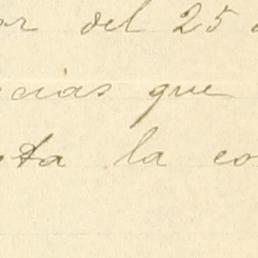 or del 25
cias que
sta la co